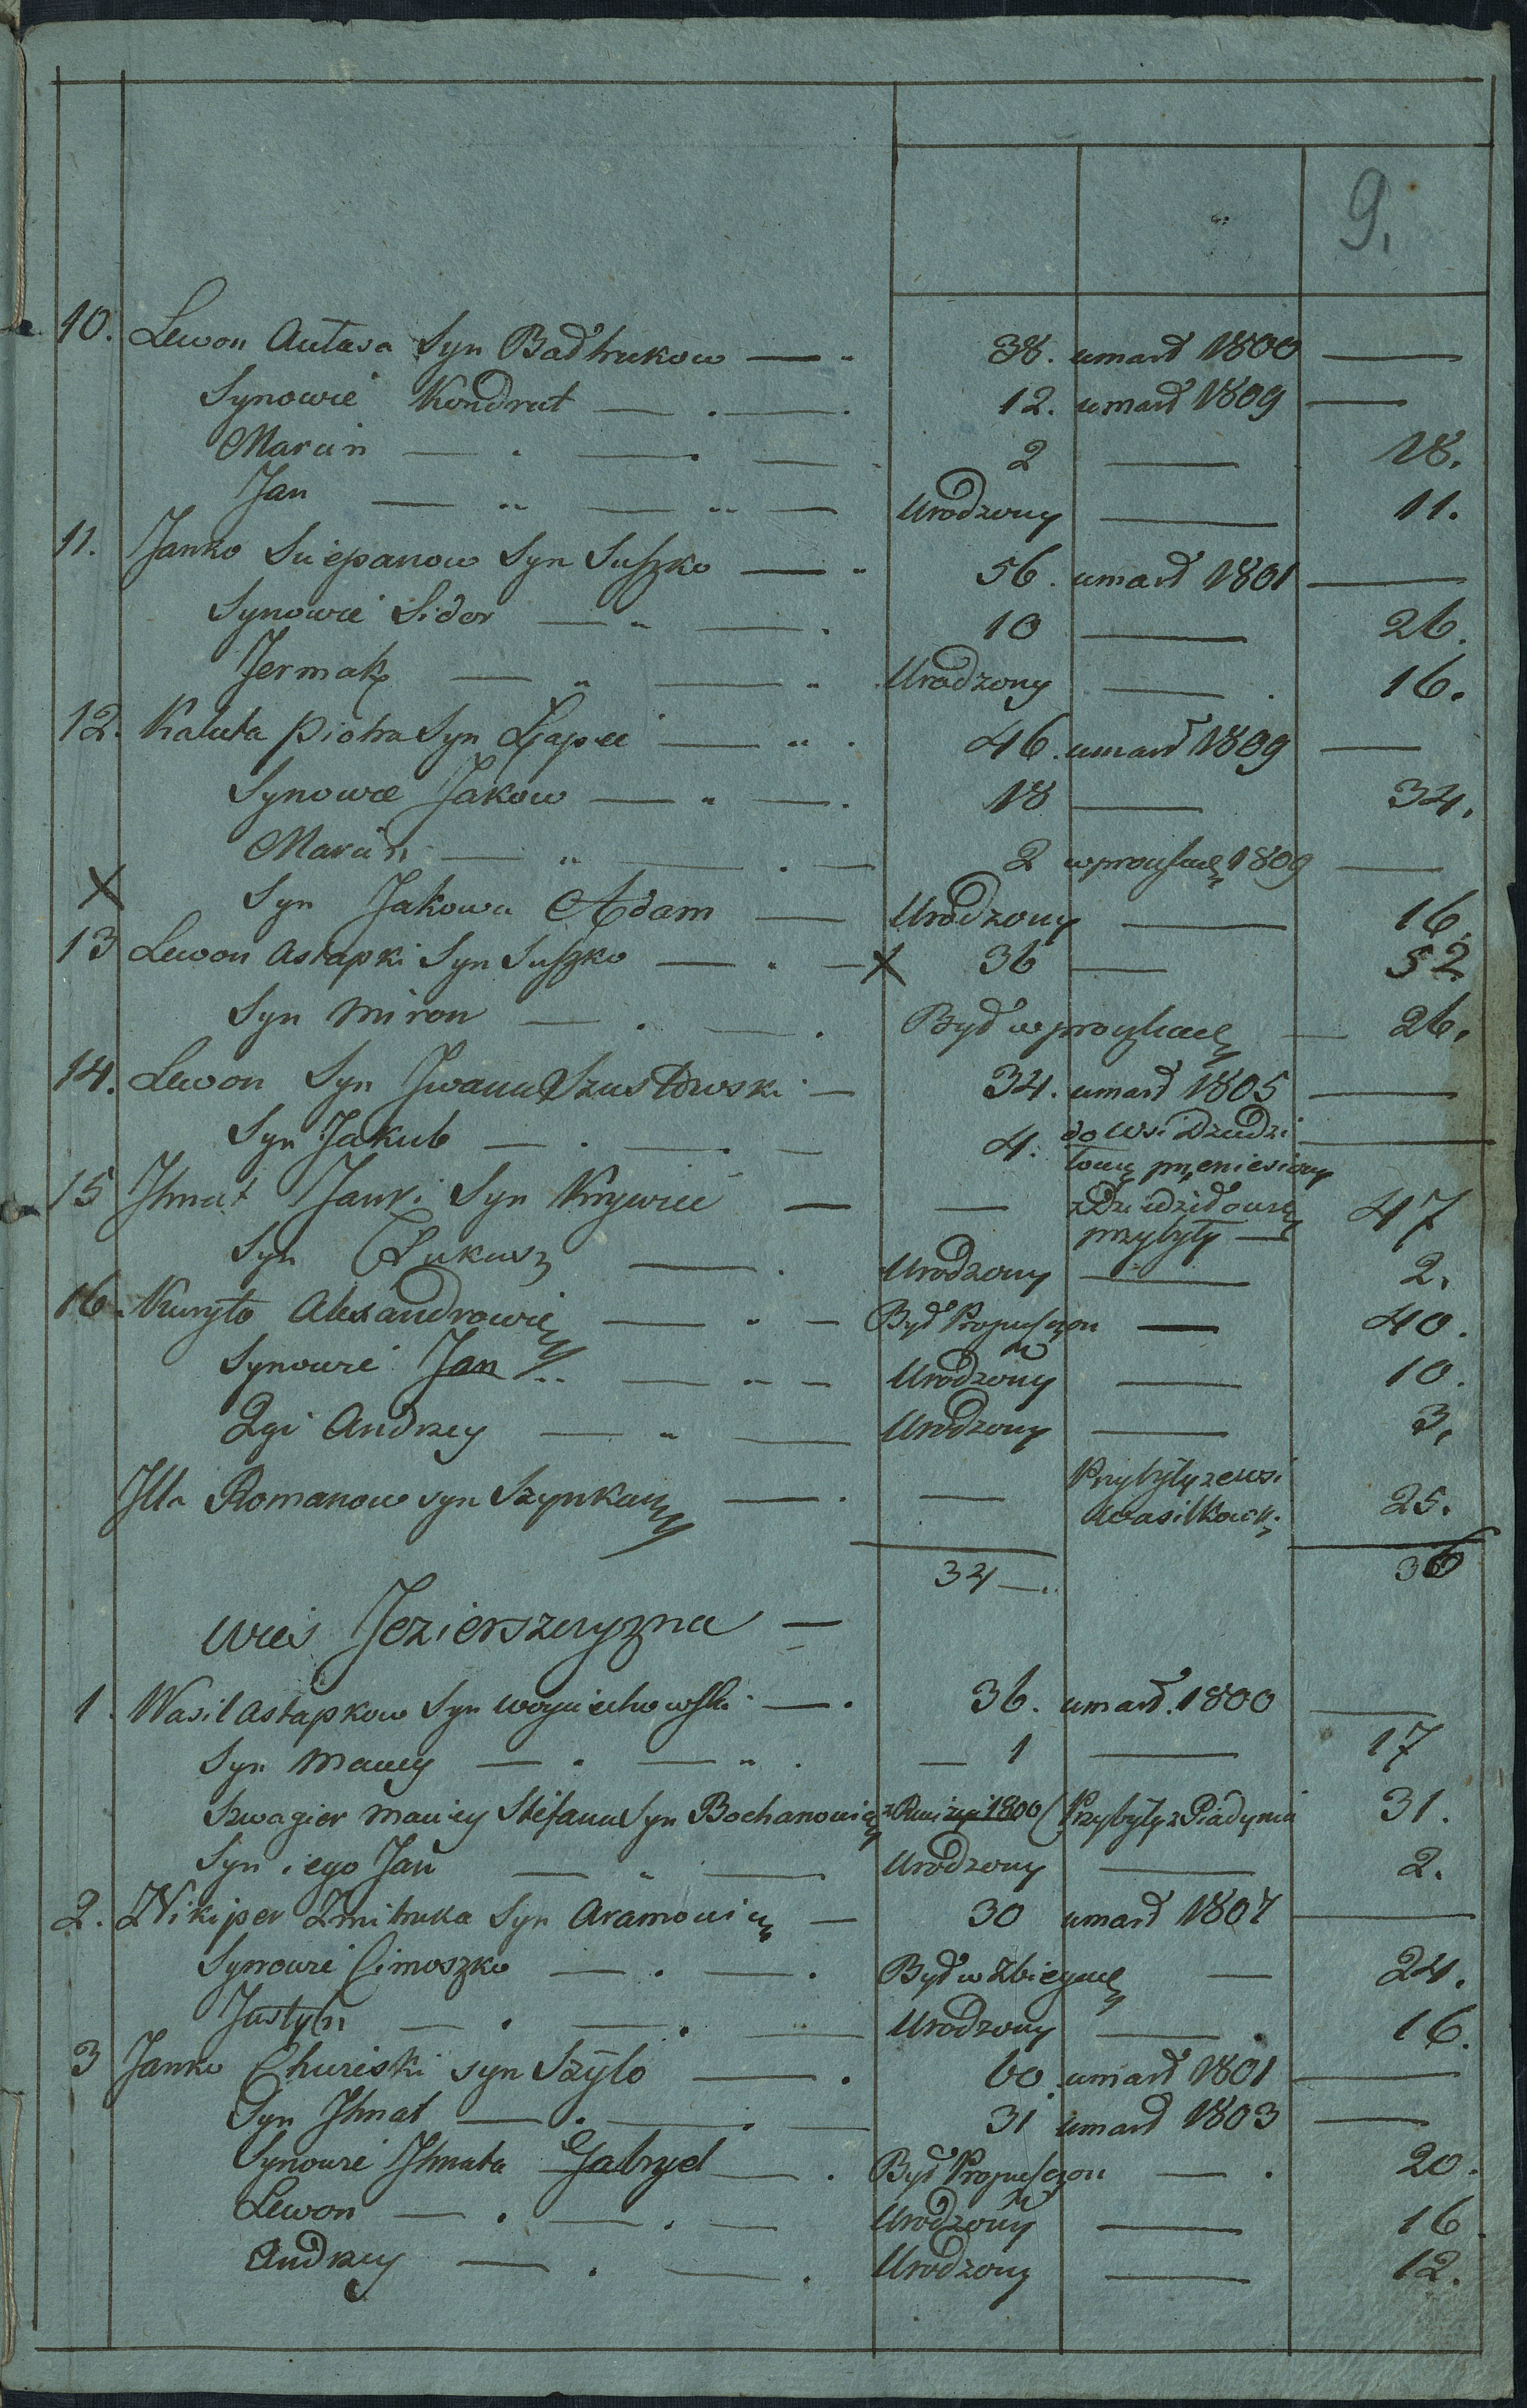 9.
10. Lewon Autasa Syn Badtrukow — 38. umarł 1800 —
Synowie Kondrat — 12. umarł 1809 —
Marcin — 2 — 18.
Jan — Urodzony — 11.
11. Janko Sciepanow Syn Suszko — 56. umarł 1801 —
Synowie Sidor — 10 — 26.
Jermak — Urodzony — 16.
12. Kaluta Piotra Syn Łapeć — 46. umarł 1809 —
Synowie Jakow — 18 — 34.
Marcin — 2 1809 —
X Syn Jakowa Adam — Urodzony — 16.
13 Lewon Astapki Syn Suszko — X 36 — 52
Syn Miron — Był w — 26.
14. Lewon Syn Iwana Szustowski — 34. umarł 1805 —
Syn Jakub — 4. do wsi Dziedzi
łowicz przeniesiony —
15 Ihnat Janki Syn Krywiec — — z Dziedziłowicz
przybyły — 47
Syn Łukasz — Urodzony — 2.
16. Kuryło Alexandrowicz — Był Propuszczon — 40.
Synowie Jan — Urodzony — 10.
2gi Andrzey — Urodzony — 3.
Illa Romanow syn Szynkar — — Przybyły ze wsi
Wasilkowki 25.
34 — 36
Wieś Jezierszczyzna —
1 Wasil Astapkow Syn Woyciechowski — 36. umarł 1800 —
Syn Maciey — 1 — 17
Szwagier Maciey Stefana Syn Bochanowicz 1800 Przybyły z Piadynia 31.
Syn iego Jan — Urodzony — 2.
2. Nikiper Zmitruka Syn Aramowicz — 30 umarł 1807 —
Synowie Cimoszko — Był w Zbiegach — 24.
Justyn — Urodzony — 16.
3 Janko Chwieski syn Szyło — 60. umarł 1801 —
Syn Ihnat — 31 umarł 1803 —
Synowie Ihnata Gabryel — Był Propuszczon — 20.
Lewon — Urodzony — 16
Andrzey — Urodzony — 12.